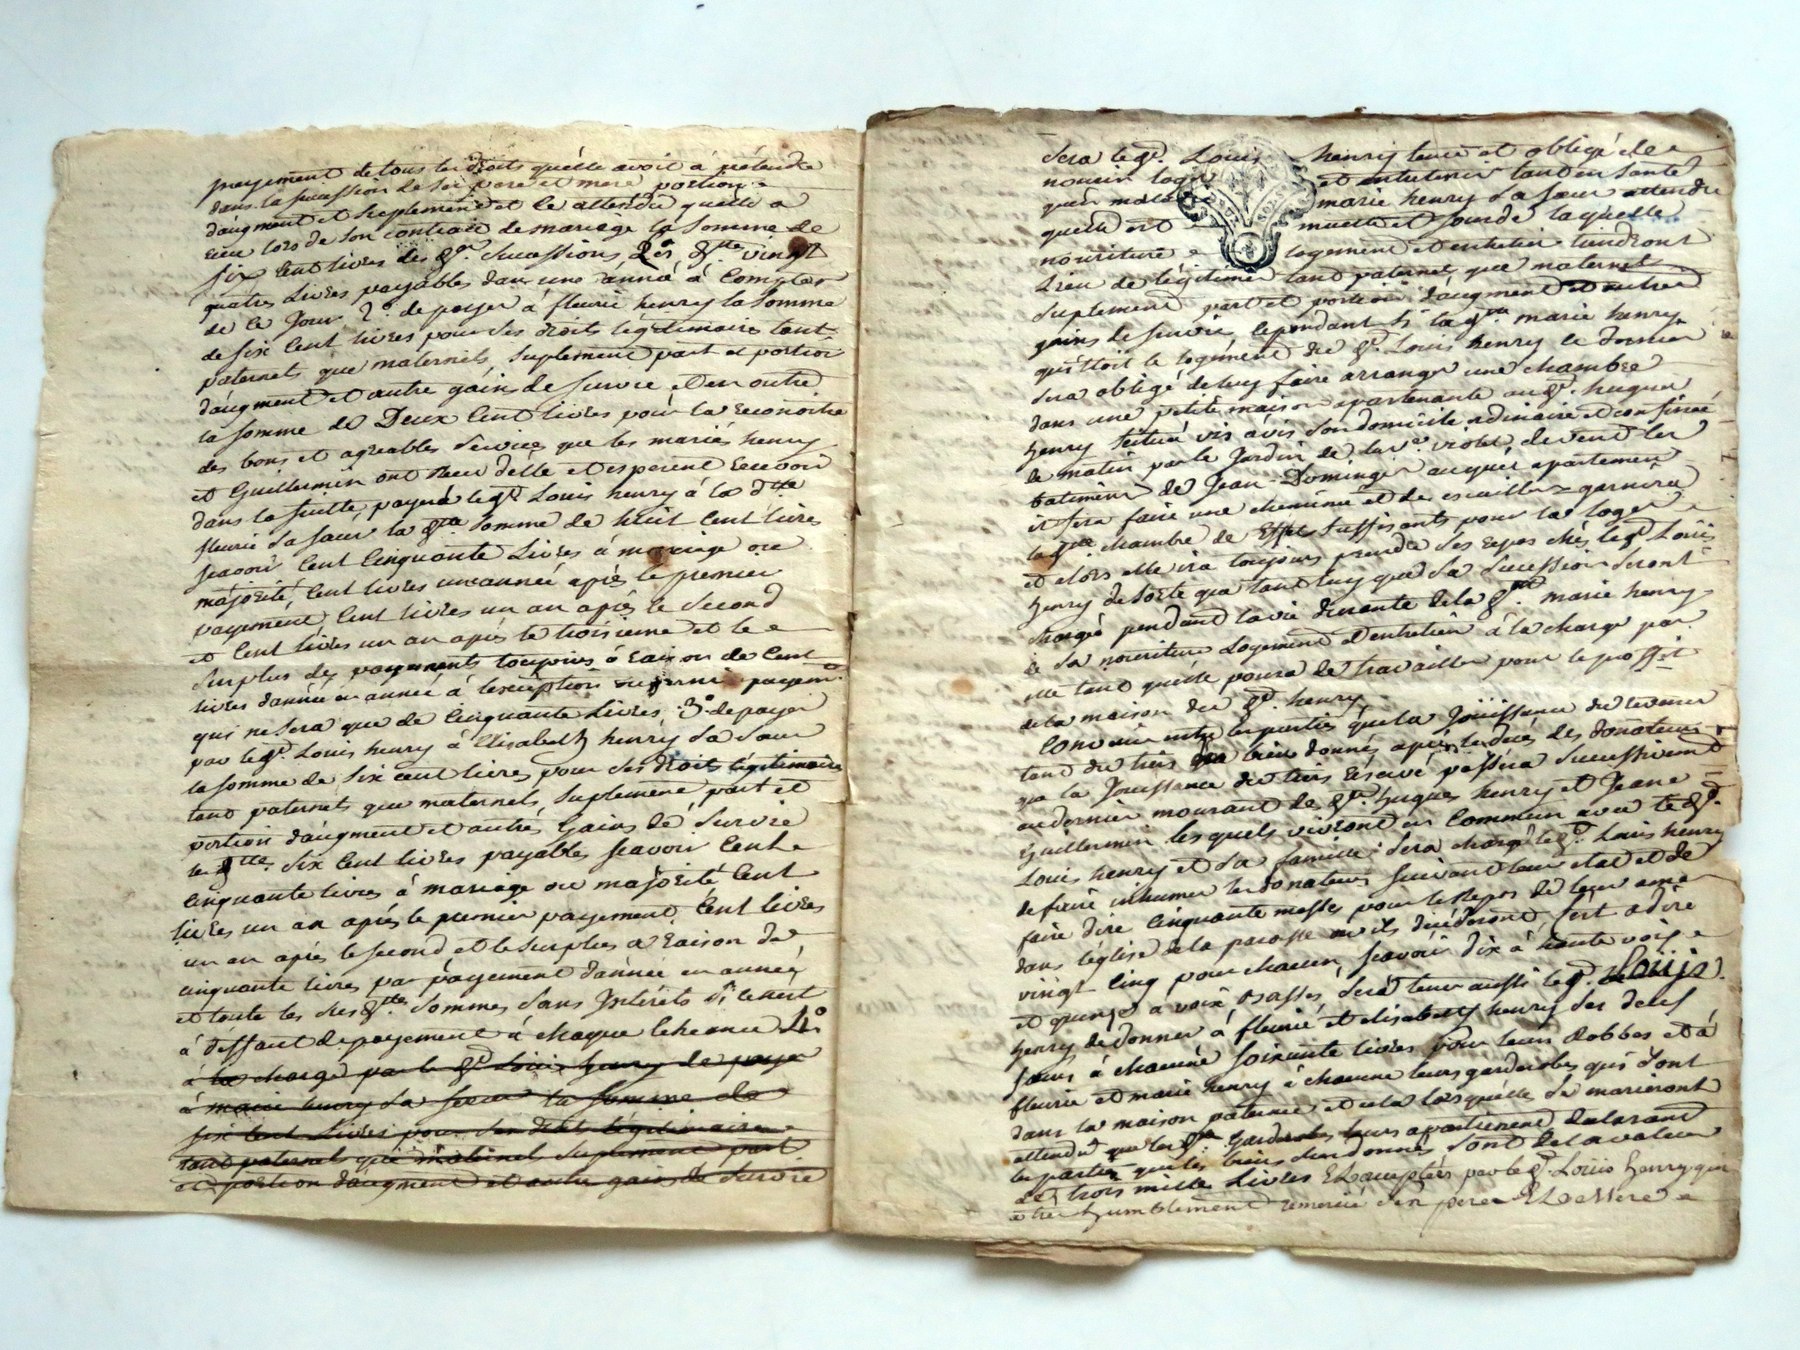 payement de tous les droits quélle avoit a prétendre
dans la sucession de ses pere et mere portion
daugment et suplement et ce attendu quelle a
reçu lors de son contract de mariage la somme de
six cent livres des dt. sucessions vingt
quatres livres payables dans une anné à compter
de ce jour 2o. de payer à fleurie henry la somme
de six cent livres pour ses droits légitimaires tant
paternels que maternels, suplement part et portion
daugment et autre gains de survie et en outre
la somme de Deux cent livres pour la reconoitre
des bons et agreables services que les mariés henry
et Guillermin ont reçu delle et esperent recevoir
dans la suitte payera le dt. Louis henry à la dte
fleurie sa sœur la dte. somme de huit cent livres
scavoir cent cinquante livres à mariage ou
majorité cent livres une année après le premier
payement, cent livres un an après le second
et cent livres un an après le troisieme et le
surplus des payements toujours à raison de cent
livres d'année en année à lexception du dernier payemt.
qui ne sera que de cinquante livres. 3o. de payer
par le dt. Louis henry à Elisabeth henry sa sœur
la somme de six cent livres pour ses droits légitimaires
tant paternels que maternels, suplement part et
portion daugment et autres gains de survie
les dttes six cent livres payables scavoir cent
cinquante livres à mariage ou majorité cent
livres un an après le premier payement, cent livres
un an après le second et le surplus a raison de
cinquante livres par payement d'année en année
et toute les sus dtes. sommes sans interets si ce n'est
à deffaut de payement à chaque echeance 4o
à la charge par le dt Louis henry de payer
à marie henry sa sœur la somme de
six cent livres pour ses droits légitimaires
tant paternel que maternel suplement part
et portion daugment et autre gain de survie
sera le dt. Louis henry tenu et obligé de
nourir loger et entretenir tant en santé
quén maladie marie henry sa sœur attendu
quelle est muette et sourde laquelle
nouriture logement et entretien tiendront
lieu de légitime tant paternel que maternel
suplement part et portion daugment et autres
gains de survie, cependant si la dte marie henry
quittoit le logement du dt. Louis henry ce dernier
sera obligé de luy faire arranger une chambre
dans une petite maison apartenante au dt. hugues
henry scituée vis à vis son domicile ordinaire et confinée
de matin par le jardin de violet de vent les
batiments de Jean Dominger auquel apartement
il fera faire une cheminée et des escailliers garnira
la dte chambre de effets suffisants pour la loger
et alors elle ira toujours prendre ses repas chés le dt Louis
henry de sorte que tant luy que sa sucession seront
chargé pendant la vie durante de la dte. marie henry
de sa nouriture logement et entretien à la charge par
elle tant quélle poura de travailler pour le proffit
de la maison du dt. henry
Convenu entre les parties que la jouissance du revenu
tant du tiers bien donnés après le decés des donateurs
que la jouissance du tiers réservé passera sucessivement
au dernier mourant des dts. hugues henry et Jeane
Guillermin lesquels vivront en commun avec le dt.
Louis henry et sa famille : sera chargé le dt Louis henry
de faire inhumer les donateurs suivant leur etat et de
faire dire cinquante messes pour le repos de leur ame
dans léglise de la paroisse ou ils décéderont sest adire
vingt cinq pour chacun, scavoir dix à haute voix
et quinze a voix basses, sera tenu aussi le dt. Loüis
henry de donner à fleurie et elisabeth henry ses deux
sœurs à chacune soixante livres pour leurs robbes et à
fleurie et marie henry à chacune leurs garderobes qui sont
dans la maison paternel et cela lorsquélles se marieront
attendu que les dtes garderobes leurs apartienent declarant
les parties que les biens cy donnés sont de la valeur
de trois mille livres Et acceptés par le dt. Loüis henry qui
a très humblement remercié son pere Et Sa Mere